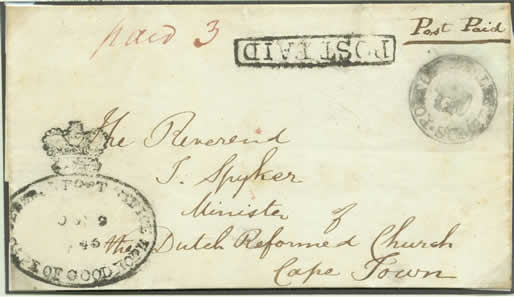 paid 3
Post Paid
POST PAID
The Reverend
J. Spyker
Minister of
the Dutch Reformed Church
Cape Town
POST OFFICE
OF GOOD HOPE